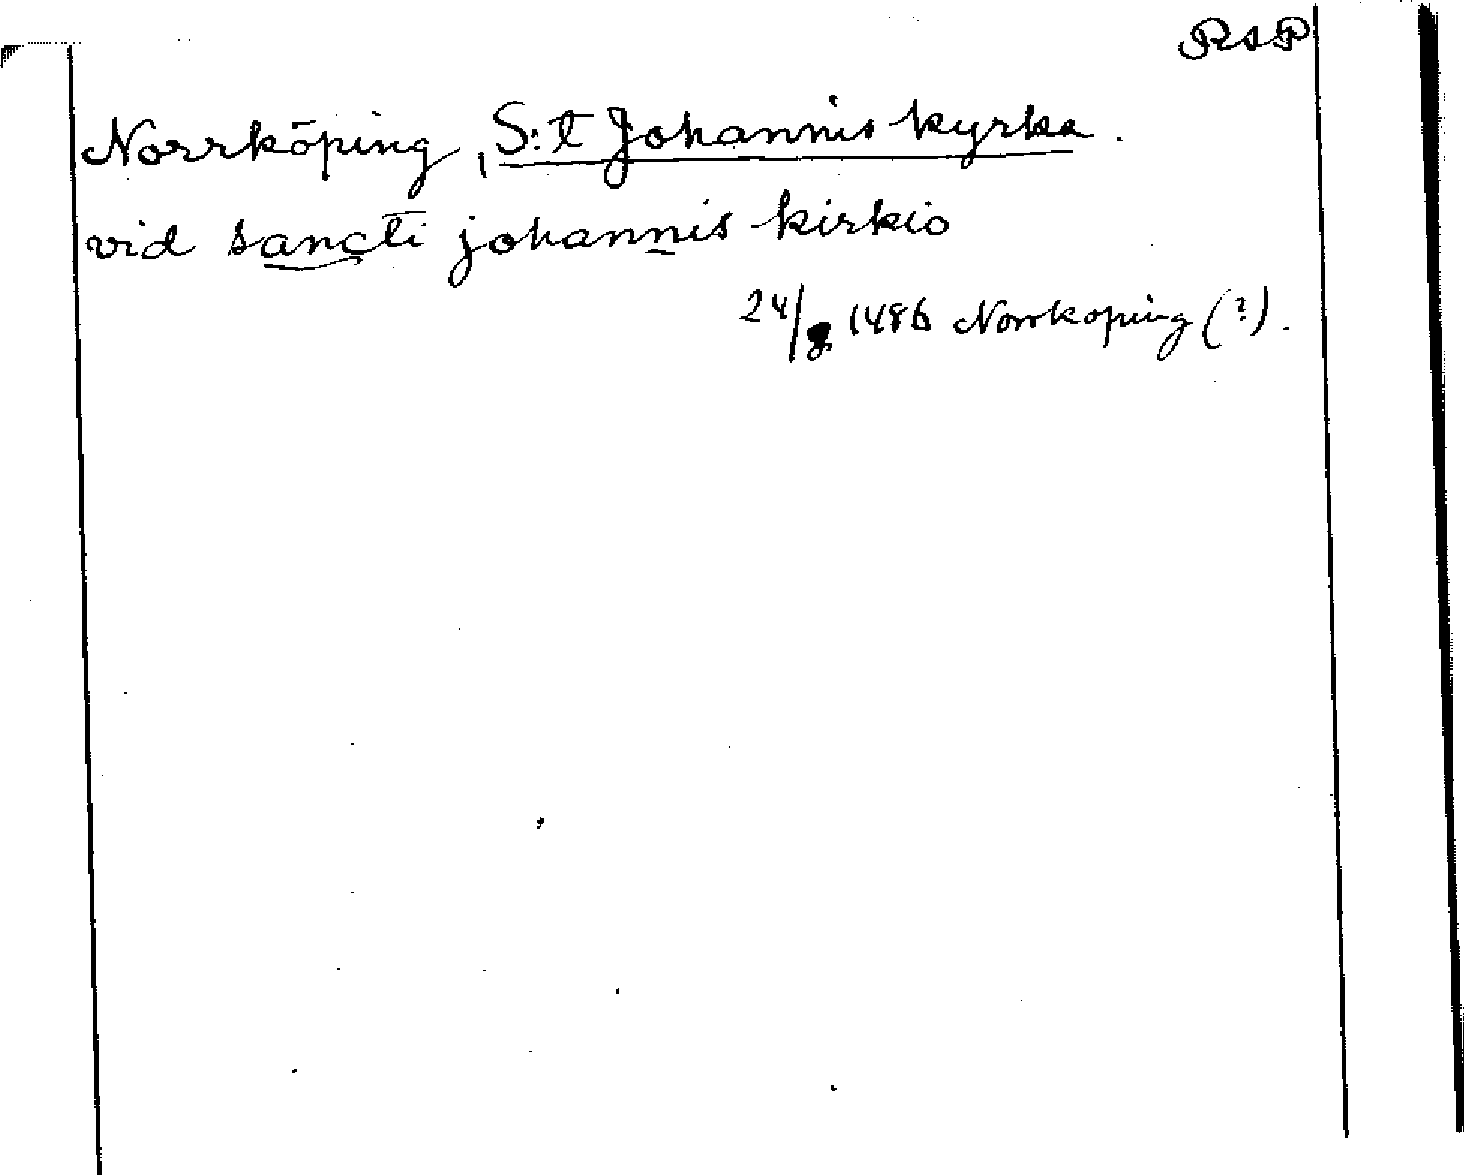 RAP
Norrköping, S:t Johannis kyrka.
vid sancti johannis kirkio
24/8 1486 Norrkoping (?).